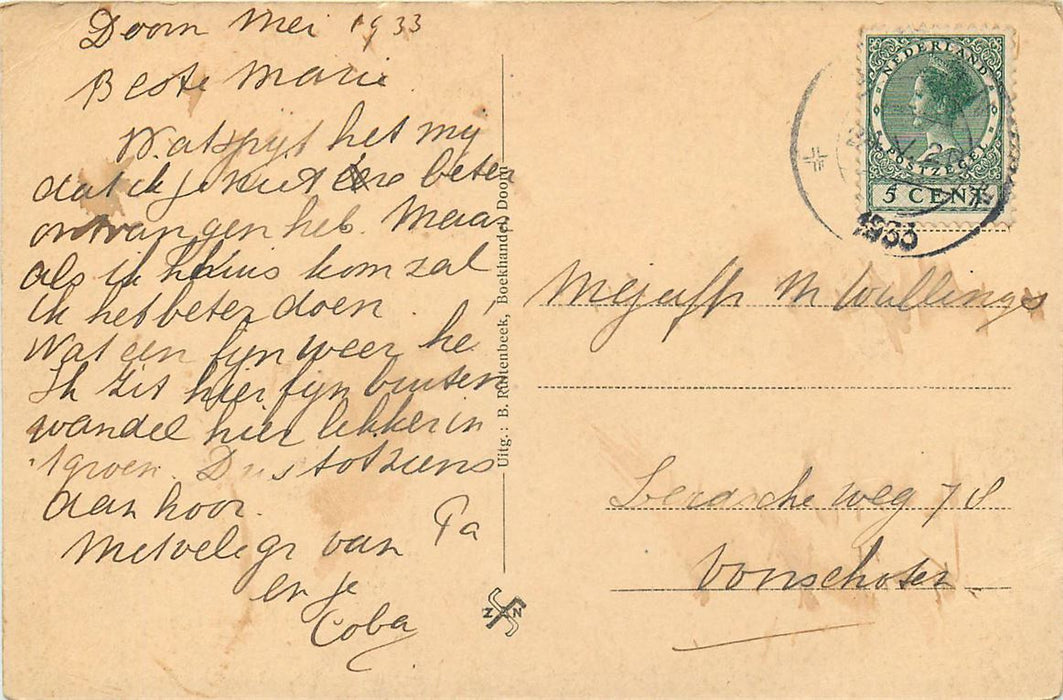 Doorn Mei 1933
Beste Marie
Wat spijt het my
dat ik je niet beter
ontvangen heb. Maar
als ik thuis kom zal
ik het beter doen.
Wat een fijn weer he
Ik zit hier fijn buiten
wandel hier lekker in
't groen. Dus tot ziens
dan hoor.
Met vele gr van Pa
en je
Coba
Uitg.: B. Ruitenbeek, Boekhandel, Doorn
Z N
NEDERLAND
POSTZEGEL
5 CENT
1933
Mejuffr M Wullings
Leidsche weg 78
Voorschoten